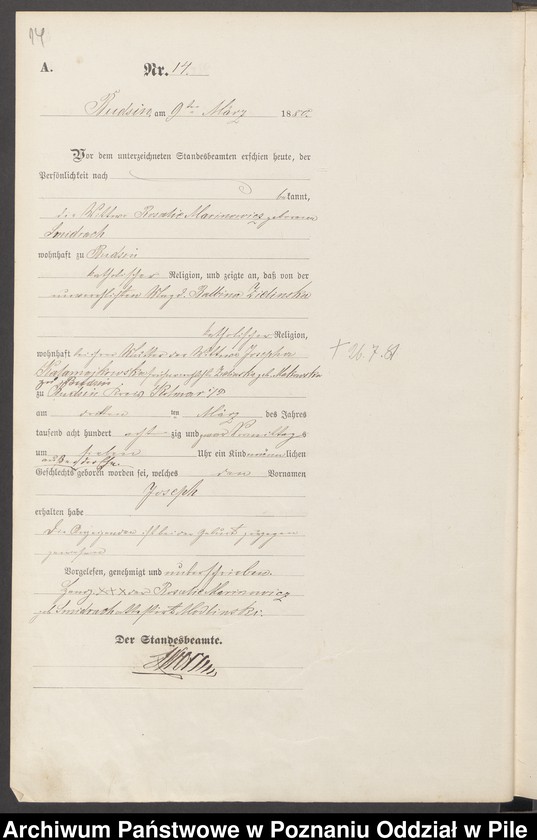 14
A.
Nr. 14.
Budsin, am 9ten März 1880.
Vor dem unterzeichneten Standesbeamten erschien heute, der
Persönlichkeit nach
bekannt,
die Wittwe Rosalie Marinowicz geborene
Smidrach
wohnhaft zu Budsin
katholischer Religion, und zeigte an, daß von der
unverehelichten Magd Balbina Zielinska
katholischer Religion,
wohnhaft bei ihrer Mutter der Wittwe Josepha
† 26.7.81
zu Budsin
zu Budsin Kreis Kolmar
am dritten ten März des Jahres
tausend acht hundert achtzig und Vormittags
um sieben Uhr ein Kind männlichen
Geschlechts geboren worden sei, welches den Vornamen
Joseph
erhalten habe
Die Anzeigende ist bei der Geburt zugegen
gewesen
Vorgelesen, genehmigt und unterschrieben.
Handz. xxx der Rosalie Marinowicz
geb. Smidrach Modlinski.
Der Standesbeamte.
Archiwum Państwowe w Poznaniu Oddział w Pile